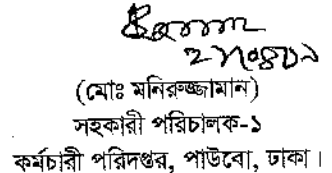 (মোঃ মনিরুজ্জামান)
সহকারী পরিচালক-১
কর্মচারী পরিদপ্তর, পাউবো, ঢাকা।